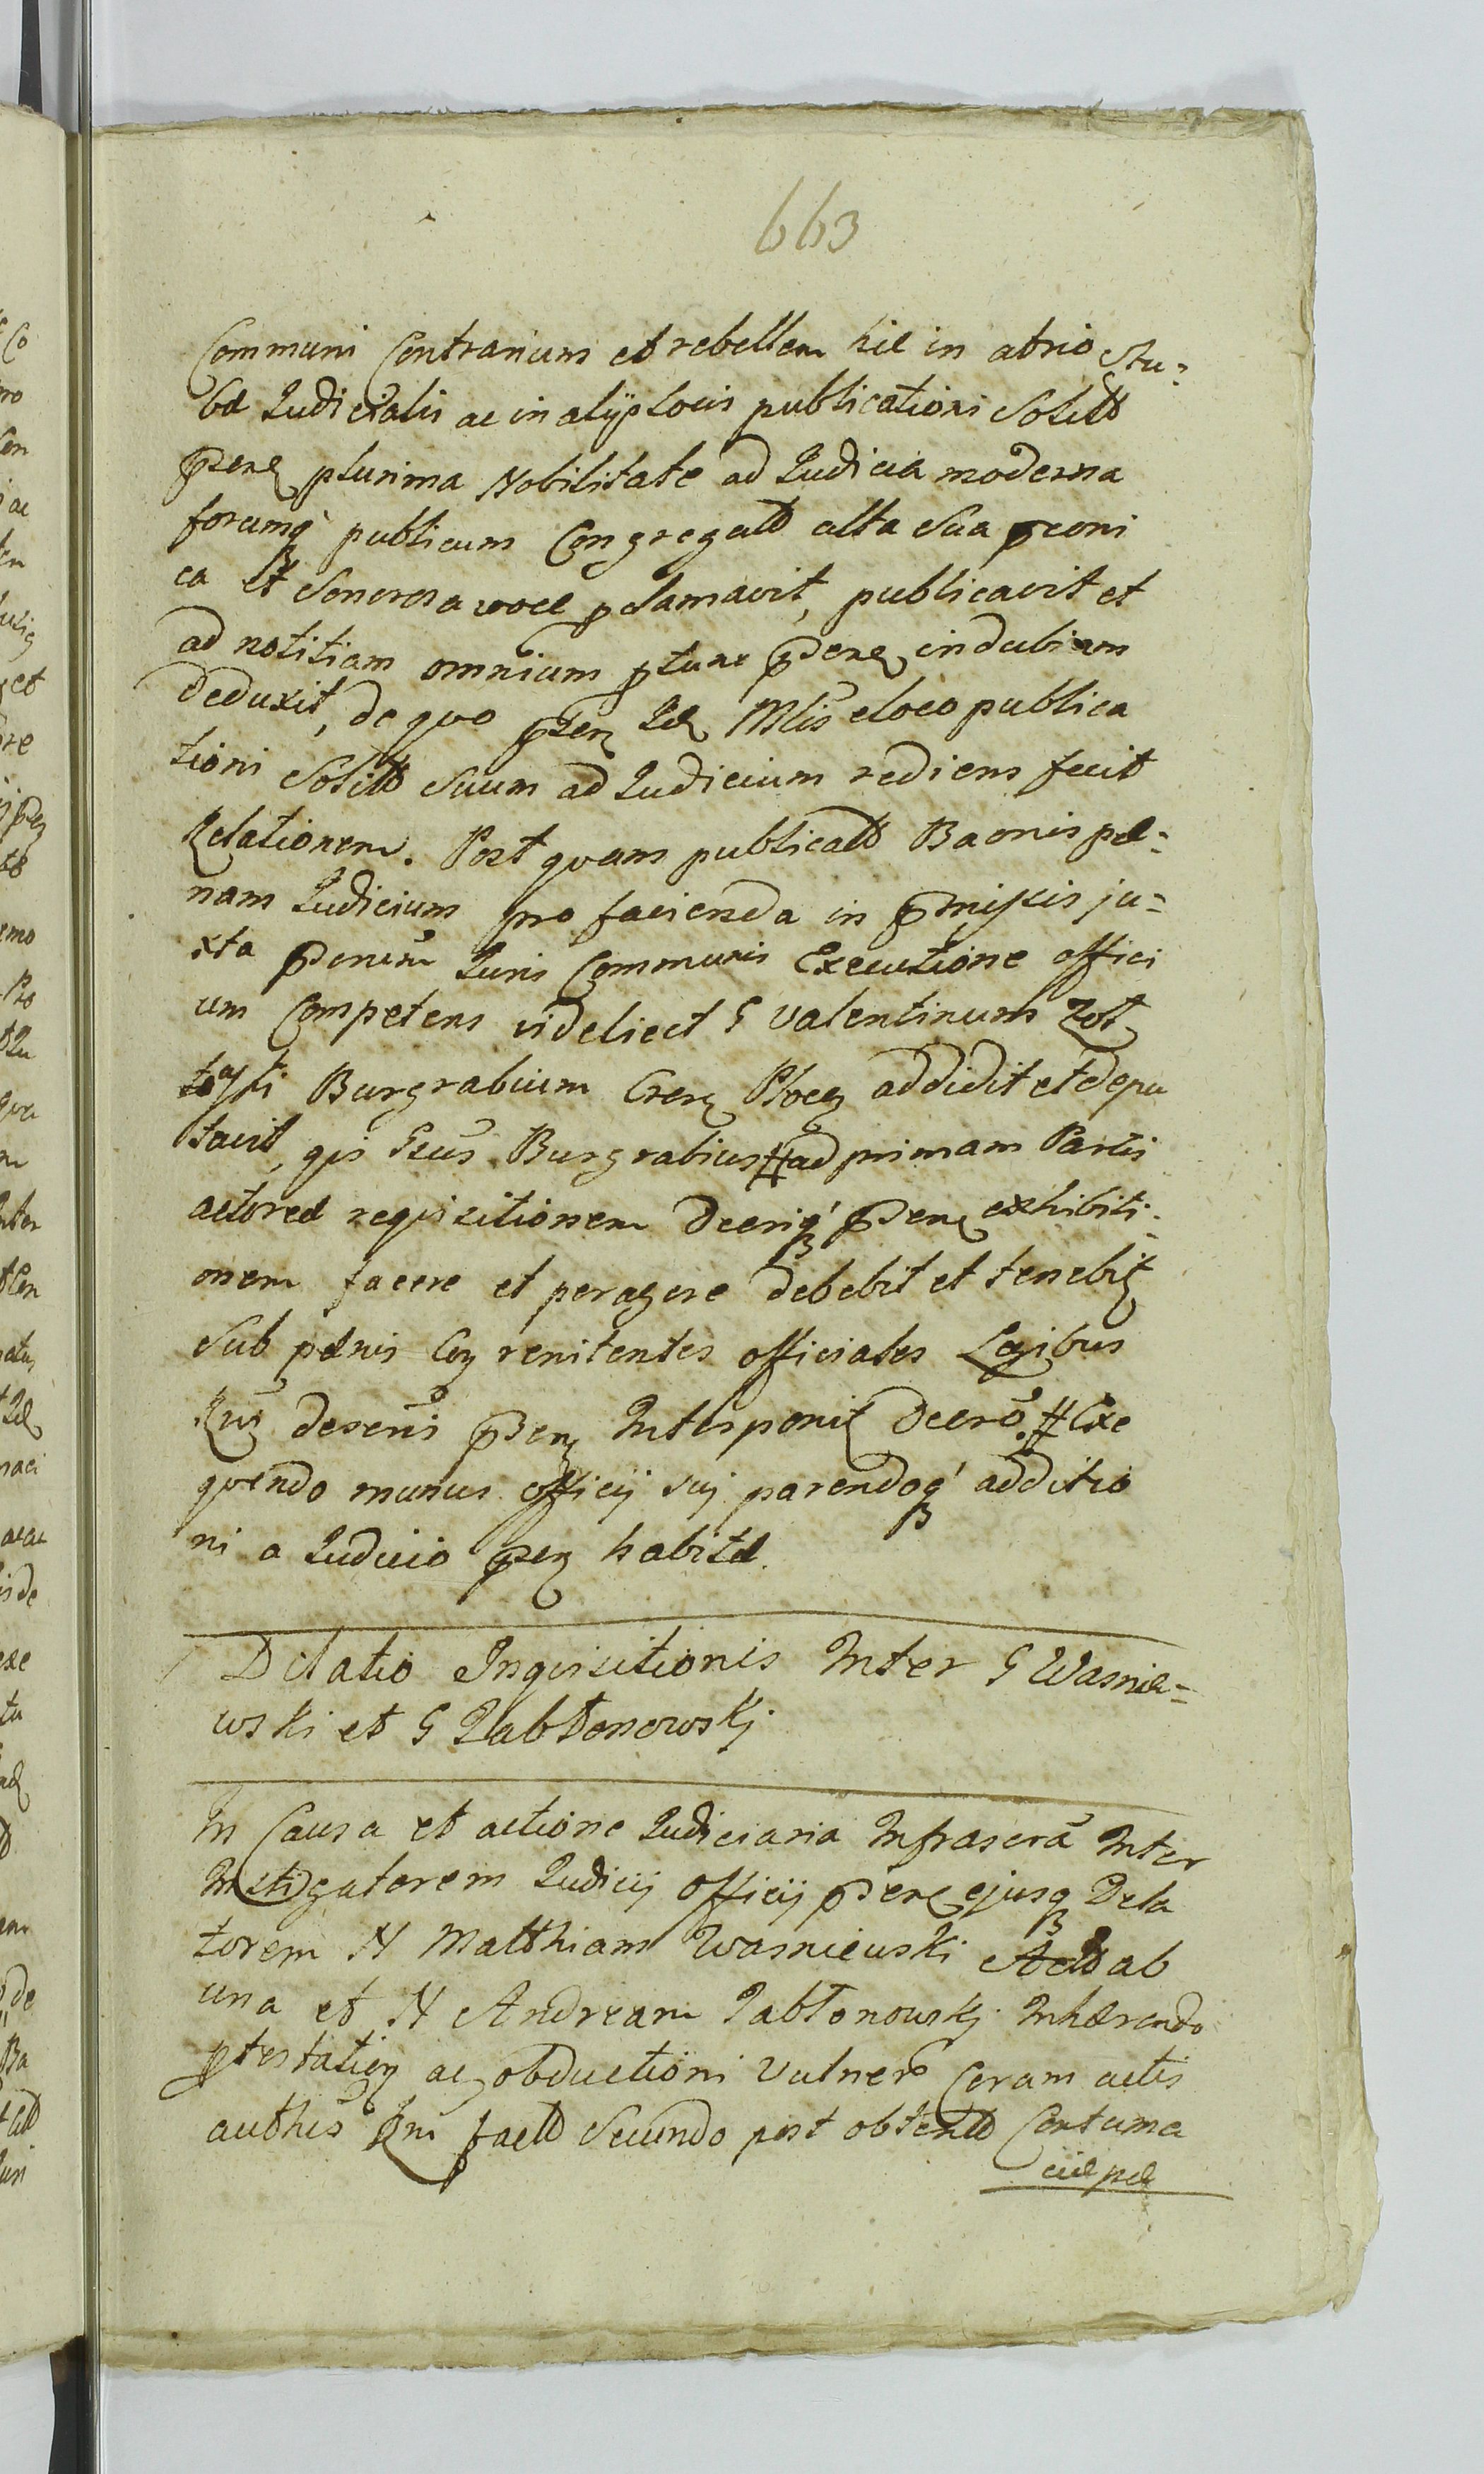 663
Communi Contrarium et rebellem hic in atrio Stu=
bæ Iudicialis ac in alijs locis publicationi Solitis
pden plurima Nobilitate ad Iudicia moderna
forumq publicum Congregatis alta Sua pconi
ca et Sonorosa voce pclamavit, publicavit et
ad notitiam omnium ptunc pden indubiam
deduxit, de quo pden Mlis eloco publica
tioni Solitis Suum ad Iudicium rediens fecit
Relationem. Post quam publicatis Baonis pæ=
nam Iudicium pro facienda in pmissis ju=
xta pdenum Iuris Communis Executione offici
um Competens videlicet G Valentinum Zol
towski Burgrabium Cren Plocen addidit et depu
tavit, qui Gsus Burgrabius # ad primam Partis
actoreæ requisitionem Decriq pden exhibiti=
onem facere et peragere debebit et tenebit
Sub pænis Con renitentes officiales Legibus
Rni descris pden Interponit Decro. # Exe
quendo munus officij sui parendoq additio
ni a Iudicio pden habitæ.
Dilatio Inquisitionis Inter G Wasnie=
wski et G Iabłonowskj
In Causa et actione Iudiciaria Infrascra Inter
Instigatorem Iudicij Officij pden ejusq Dela
torem N Matthiam Wasniewski ab
una et N Andream Iabłonowskj Inhærendo
ptestation ac obductioni Vulnerū Coram actis
authis factis Secundo post obtentis Contuma
ciæ pæ